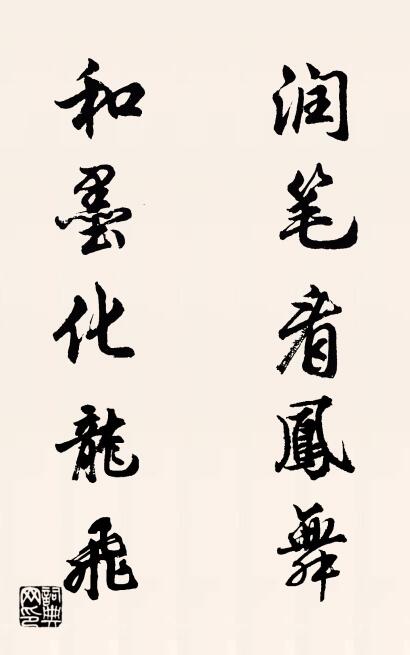 润笔看鳳舞
和墨化龍飛
詞典
网印